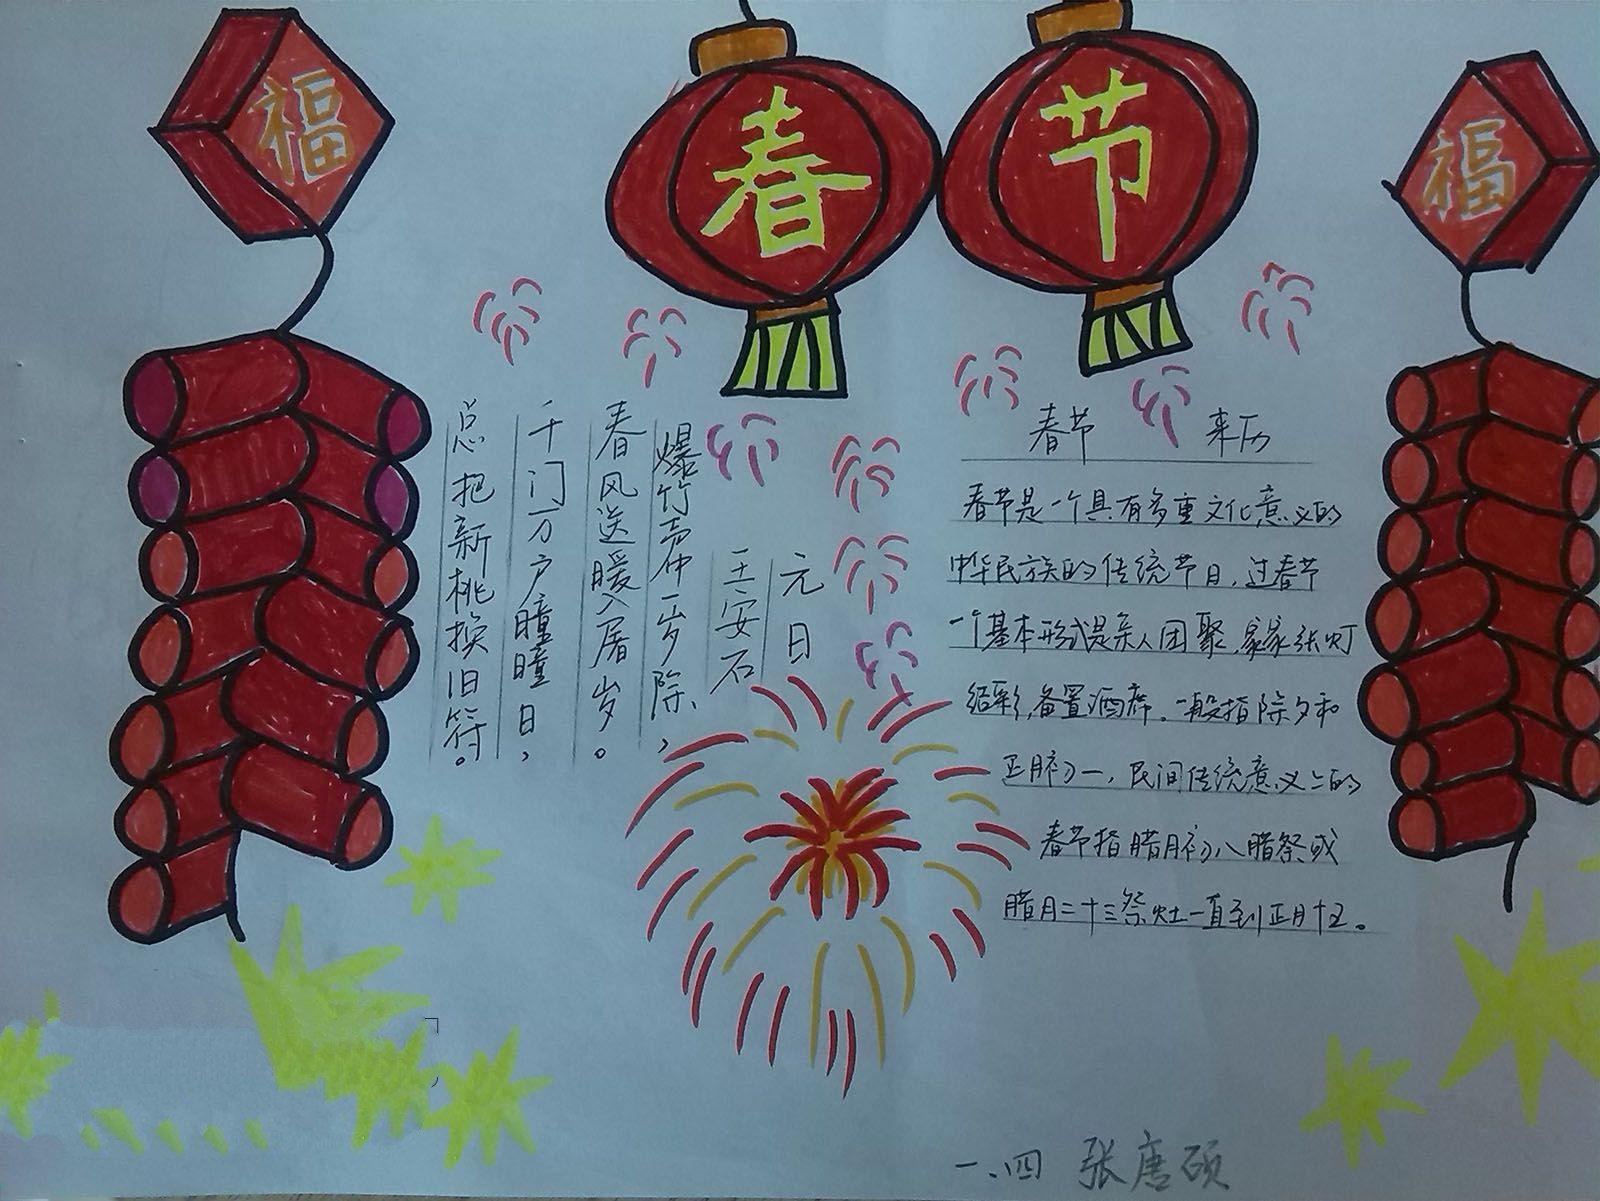 福
春节
福
元日
王安石
爆竹声仲一岁除,
春风送暖入屠岁。
千门万户瞳瞳日,
总把新桃换旧符。
春节 来历
春节是一个具有多重文化意义的
中华民族的传统节日,过春节
一个基本形式是亲人团聚,家家张灯
结彩,备置酒席。一般指除夕和
正月初一,民间传统意义上的
春节指腊月初八腊祭或
腊月二十三祭灶一直到正月十五。
一.四 张唐硕